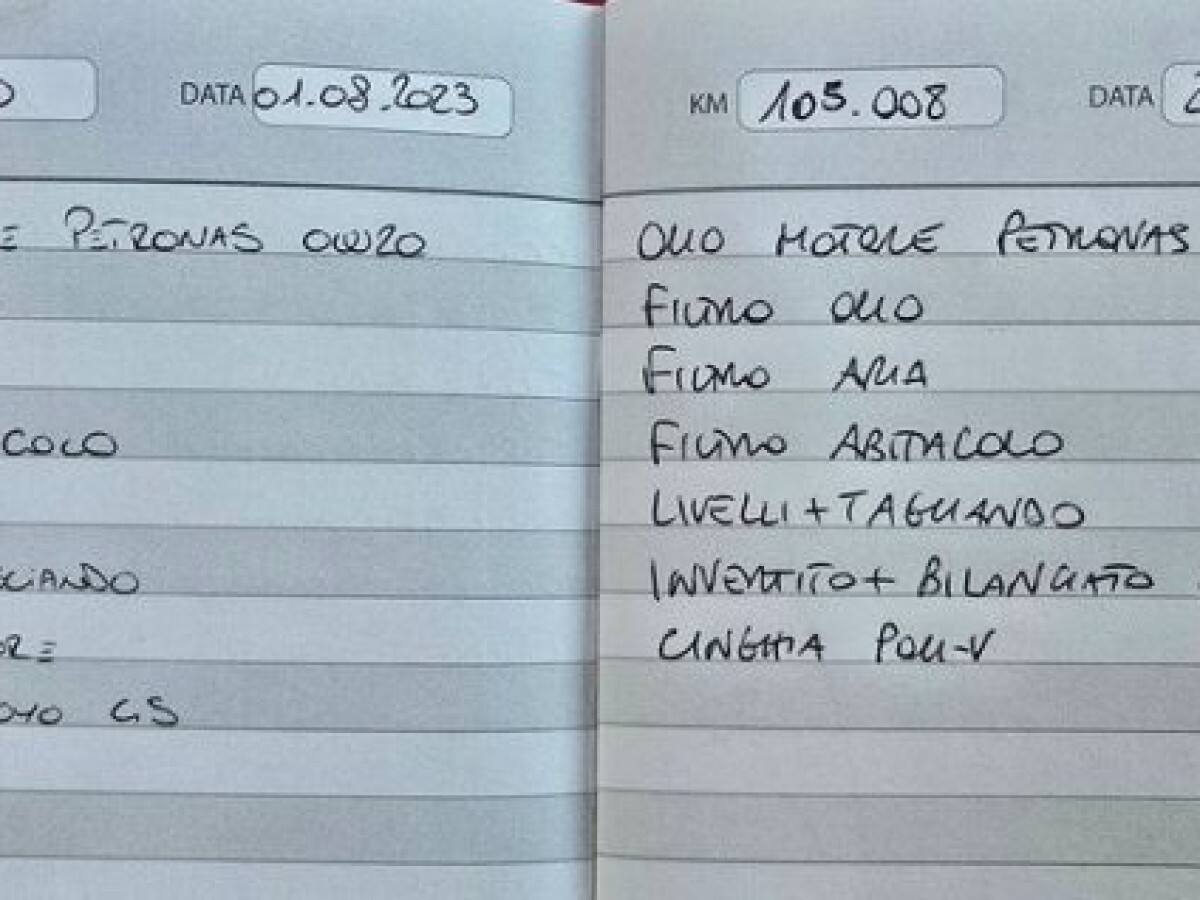 DATA 01.08.2023
E PETRONAS 0W20
COLO
GLIANDO
ORE
GS
KM 105.008 DATA 2
OLIO MOTORE PETRONAS
FILTRO OLIO
FILTRO ARIA
FILTRO ABITACOLO
LIVELLI + TAGLIANDO
INVERTITO + BILANCIATO
CINGHIA POLI-V